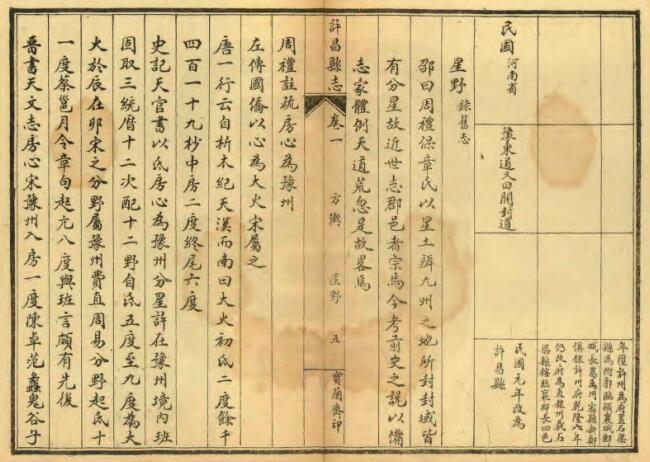 民國 河南省
豫東道又曰開封道
年陞許州為府置石梁
縣為附郭臨潁襄城郾
城長葛禹州密縣新鄭
俱隸許州府乾隆六年
仍改府為直隸州裁石
梁縣轄臨襄郾長四邑
民國元年改為
許昌縣
星野 錄舊志
邵曰周禮保章氏以星土辨九州之地所封封域皆
有分星故近世志郡邑者宗焉今考前史之說以備
志家體例天道荒忽是故畧焉
許昌縣志
卷一
方輿
星野
五
寶蘭齋印
周禮註疏房心為豫州
左傳國僑以心為大火宋屬之
唐一行云自析木紀天漢而南曰大火初氐二度餘千
四百一十九杪中房二度終尾六度
史記天官書以氐房心為豫州分星許在豫州境內班
固取三統曆十二次配十二野自氐五度至九度為大
火於辰在卯宋之分野屬豫州費直周易分野起氐十
一度蔡邕月令章句起亢八度與班言頗有先後
晉書天文志房心宋豫州入房一度陳卓范蠡鬼谷子